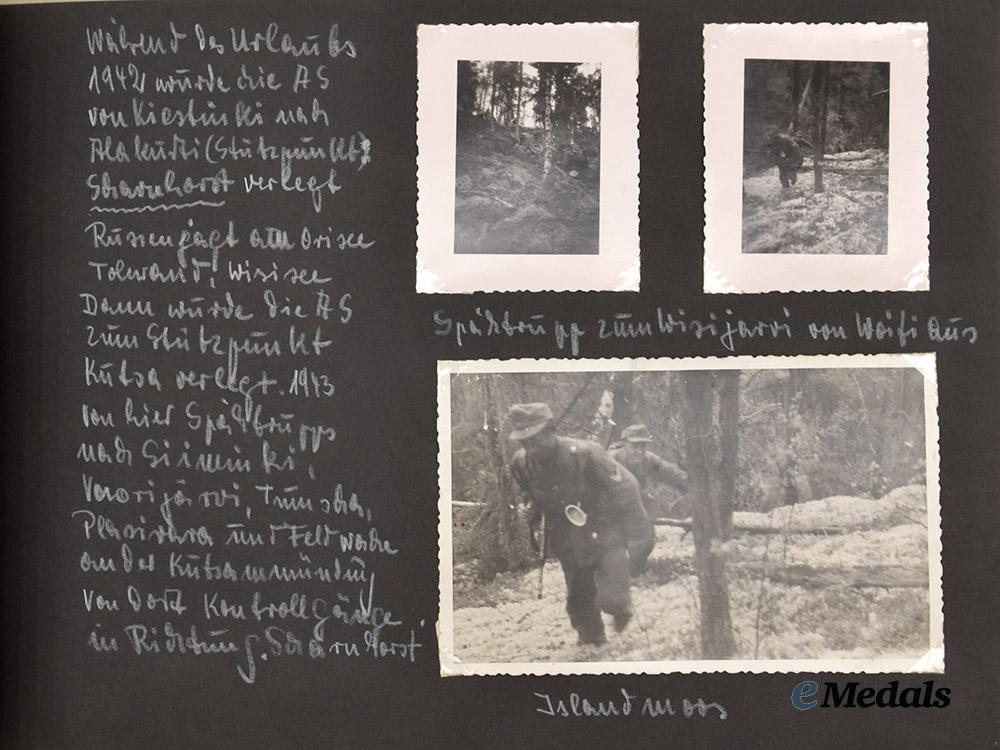 Während des Urlaubs
1942 wurde die AS
von Kiestinki nach
Alakurtti (Stützpunkt)
Scharnhorst verlegt
Russenjagt am Orisee
Tolwand, Wisisee
Dann wurde die AS
zum Stützpunkt
Kutsa verlegt. 1943
von hier Spähtrupps
nach
Vuorijärvi, Tumscha,
und Feldwache
an der Kutsamündung
Von dort Kontrollgänge
in Richtung Scharnhorst
Spähtrupp zum Wisijarvi von aus
Islandmoos
eMedals